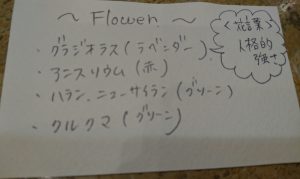 ～ Flower ～
・グラジオラス(ラベンダー)
・アンスリウム(赤)
・ハラン、ニューサイラン(グリーン)
・クルクマ(グリーン)
<花言葉>
人格的
強さ